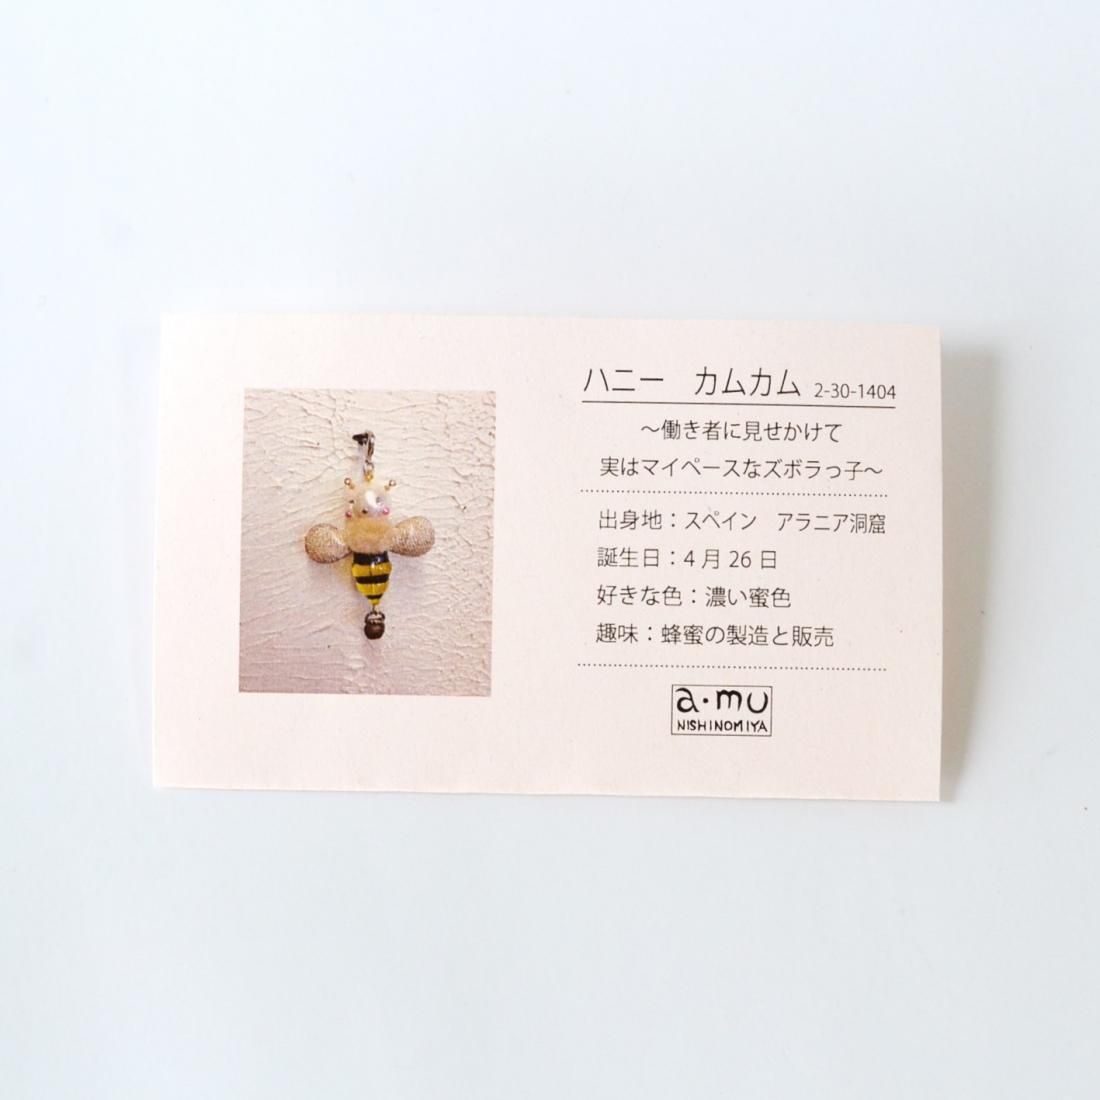 ハニー　カムカム 2-30-1404
～働き者に見せかけて
実はマイペースなズボラっ子～
出身地：スペイン　アラニア洞窟
誕生日：4月26日
好きな色：濃い蜜色
趣味：蜂蜜の製造と販売
a・mu
NISHINOMIYA